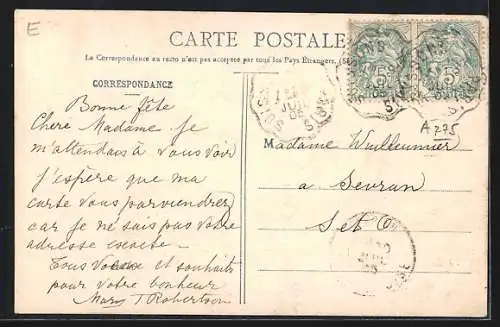 E
CARTE POSTALE
La Correspondance au recto n'est pas acceptée par tous les Pays Étrangers. (S
CORRESPONDANCE
Bonne fête
Chere Madame je
m'attendais à vous voir
j'espère que ma
carte vous parviendrez
car je ne sais pas votre
adresse exacte –
Tous voeux et souhaits
pour votre bonheur
Mary T Robertson
5c
5c
JUIL
05
A 775
Madame Wuilleumier
a Sevran
S et O